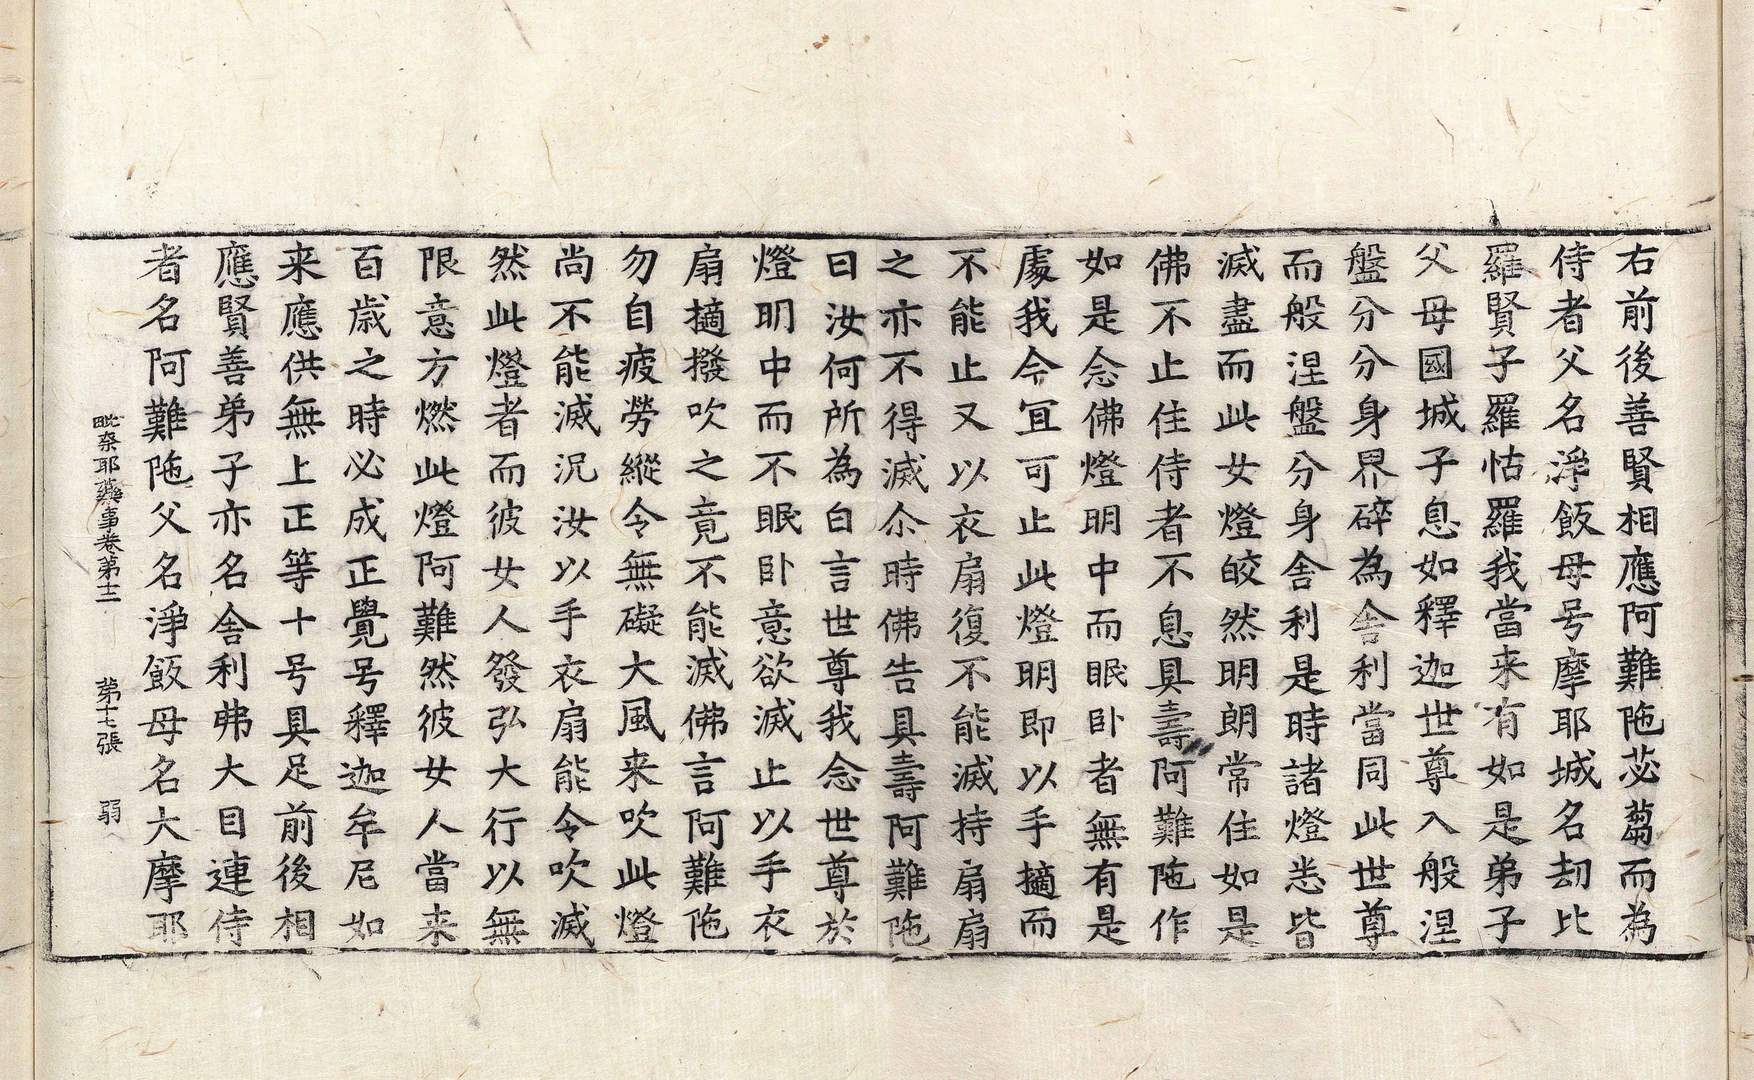 右前後善賢相應阿難陁苾蒭而為
侍者父名淨飯母号摩耶城名劫比
羅賢子羅怙羅我當来有如是弟子
父母國城子息如釋迦世尊入般涅
盤分分身界碎為舎利當同此世尊
而般涅盤分身舎利是時諸燈悉皆
滅盡而此女燈皎然明朗常住如是
佛不止住侍者不息具壽阿難陁作
如是念佛燈明中而眠卧者無有是
處我今冝可止此燈明即以手擿而
不能止又以衣扇復不能滅持扇扇
之亦不得滅尒時佛告具壽阿難陁
曰汝何所為白言世尊我念世尊於
燈明中而不眠卧意欲滅止以手衣
扇擿撥吹之竟不能滅佛言阿難陁
勿自疲勞縱令無礙大風来吹此燈
尚不能滅況汝以手衣扇能令吹滅
然此燈者而彼女人發弘大行以無
限意方燃此燈阿難然彼女人當来
百歳之時必成正覺号釋迦牟尼如
来應供無上正等十号具足前後相
應賢善弟子亦名舎利弗大目連侍
者名阿難陁父名淨飯母名大摩耶
毗奈耶藥事卷第十二 第十七張 弱